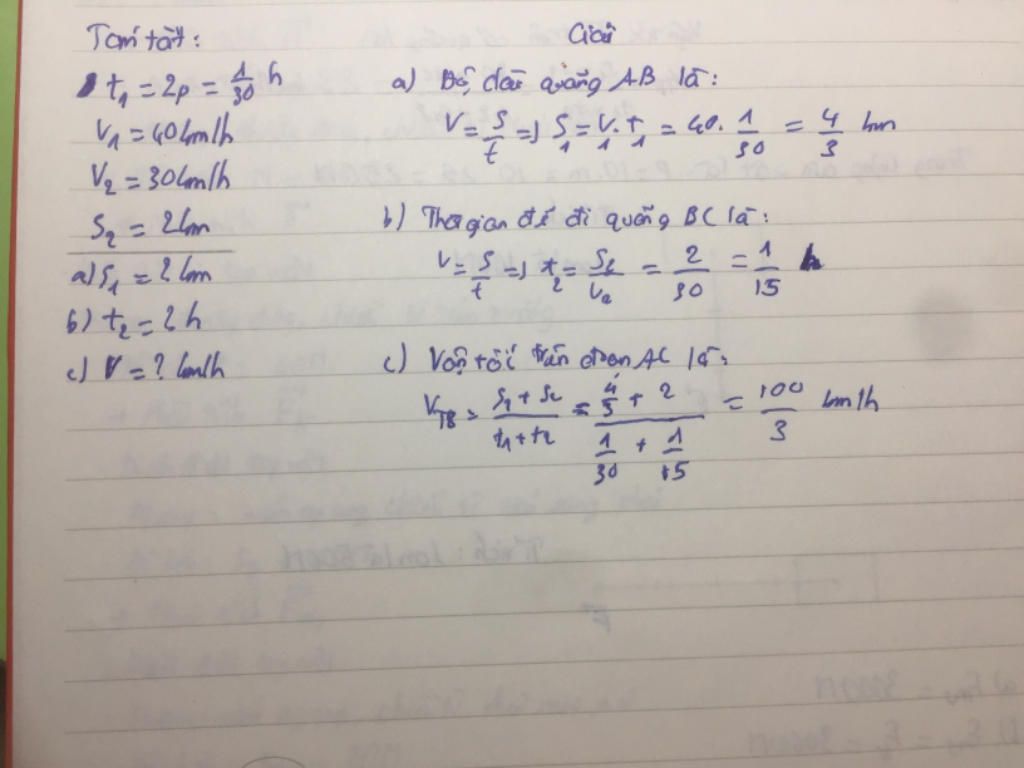 Tóm tắt:
t₁ = 2p = 1/30 h
V₁ = 40 km/h
V₂ = 30 km/h
S₂ = 2 km
a) S₁ = ? km
b) t₂ = ? h
c) V = ? km/h
Giải
a) Độ dài quãng AB là:
V = S/t => S₁ = V₁.t₁ = 40. 1/30 = 4/3 km
b) Thời gian để đi quãng BC là:
V = S/t => t₂ = S₂/V₂ = 2/30 = 1/15 h
c) Vận tốc trên đoạn AC là:
V_TB = (S₁ + S₂)/(t₁ + t₂) = (4/3 + 2)/(1/30 + 1/15) = 100/3 km/h